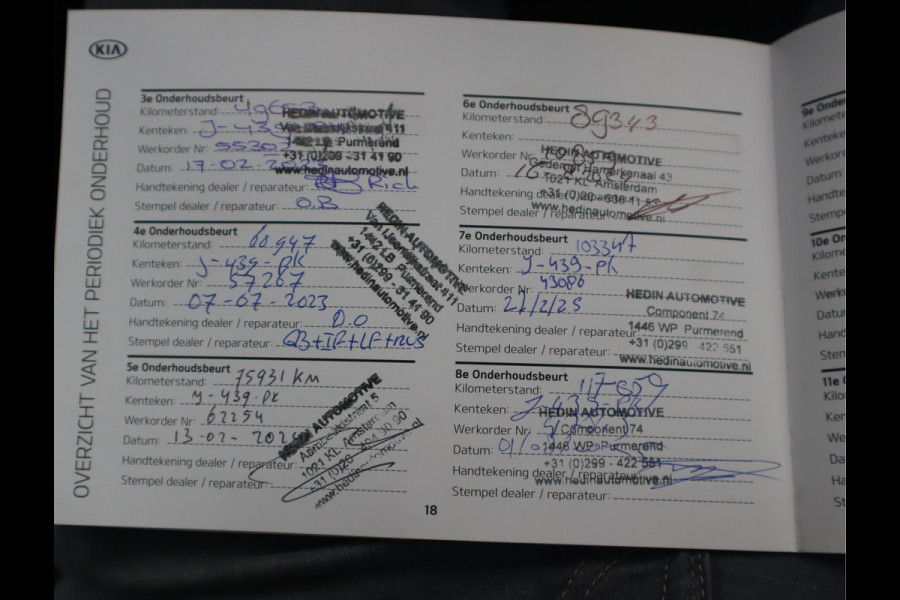 KIA
OVERZICHT VAN HET PERIODIEK ONDERHOUD
3e Onderhoudsbeurt
Kilometerstand:
Kenteken: J-439-
Werkorder Nr: 55307
Datum: 17-02-
Handtekening dealer / reparateur: Rich
Stempel dealer / reparateur: O.B
HEDIN AUTOMOTIVE
1442 LB Purmerend
+31 (0)299 - 31 41 90
www.hedinautomotive.nl
4e Onderhoudsbeurt
Kilometerstand: 60947
Kenteken: J-439-PK
Werkorder Nr: 57287
Datum: 07-07-2023
Handtekening dealer / reparateur: D.O
Stempel dealer / reparateur:
HEDIN AUTOMOTIVE
1442 LB Purmerend
+31 (0)299 - 31 41 90
www.hedinautomotive.nl
5e Onderhoudsbeurt
Kilometerstand: 75931 KM
Kenteken: J-439-PK
Werkorder Nr: 62254
Datum: 13-02-2024
Handtekening dealer / reparateur:
Stempel dealer / reparateur:
HEDIN AUTOMOTIVE
1021 KL Amsterdam
6e Onderhoudsbeurt
Kilometerstand: 89343
Kenteken:
Werkorder Nr:
Datum:
Handtekening dealer / reparateur:
Stempel dealer / reparateur:
HEDIN AUTOMOTIVE
Gedempt Hamerkanaal 43
1021 KL Amsterdam
www.hedinautomotive.nl
7e Onderhoudsbeurt
Kilometerstand: 103347
Kenteken: J-439-PK
Werkorder Nr: 43086
Datum: 21/2/25
Handtekening dealer / reparateur:
Stempel dealer / reparateur:
HEDIN AUTOMOTIVE
Component 74
1446 WP Purmerend
+31 (0)299 422 551
www.hedinautomotive.nl
8e Onderhoudsbeurt
Kilometerstand: 117659
Kenteken: J-439-PK
Werkorder Nr:
Datum: 01/
Handtekening dealer / reparateur:
Stempel dealer / reparateur:
HEDIN AUTOMOTIVE
Component 74
1446 WP Purmerend
+31 (0)299 - 422 551
www.hedinautomotive.nl
18
9e Onde
Kilomete
Kenteke
Werkor
Datum
Handte
Stempe
10e On
Kilome
Kente
Werk
Datu
Han
Sten
11e
Kilo
Ken
We
Da
Ha
St